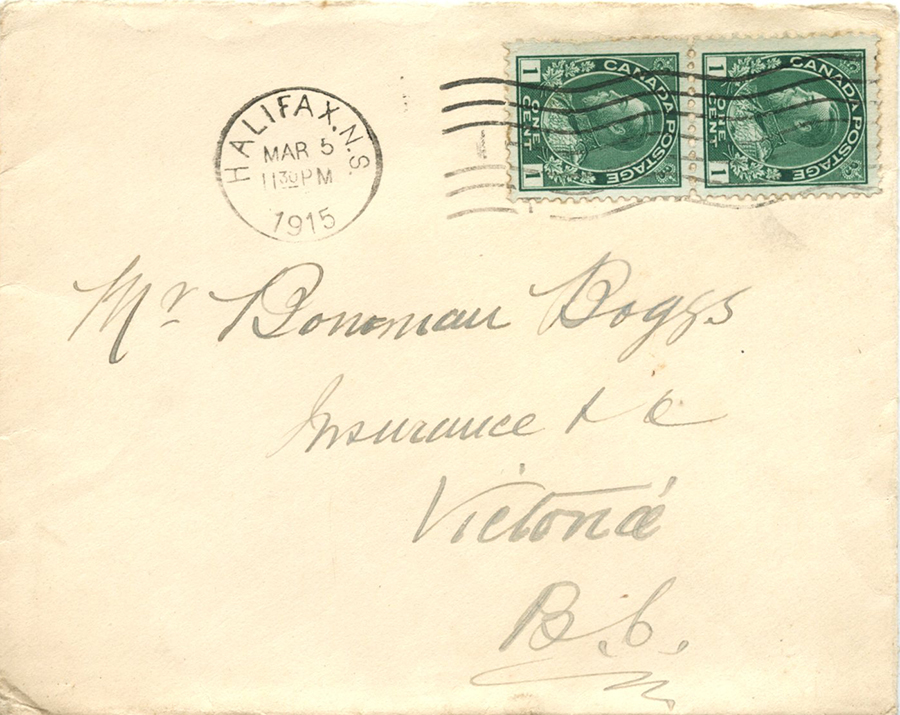 HALIFAX, N.S.
MAR 5
11 30 PM
1915
CANADA POSTAGE
1 ONE CENT 1
CANADA POSTAGE
1 ONE CENT 1
Mr Bonnman Boggs
Insurance & c
Victoria
B.C.